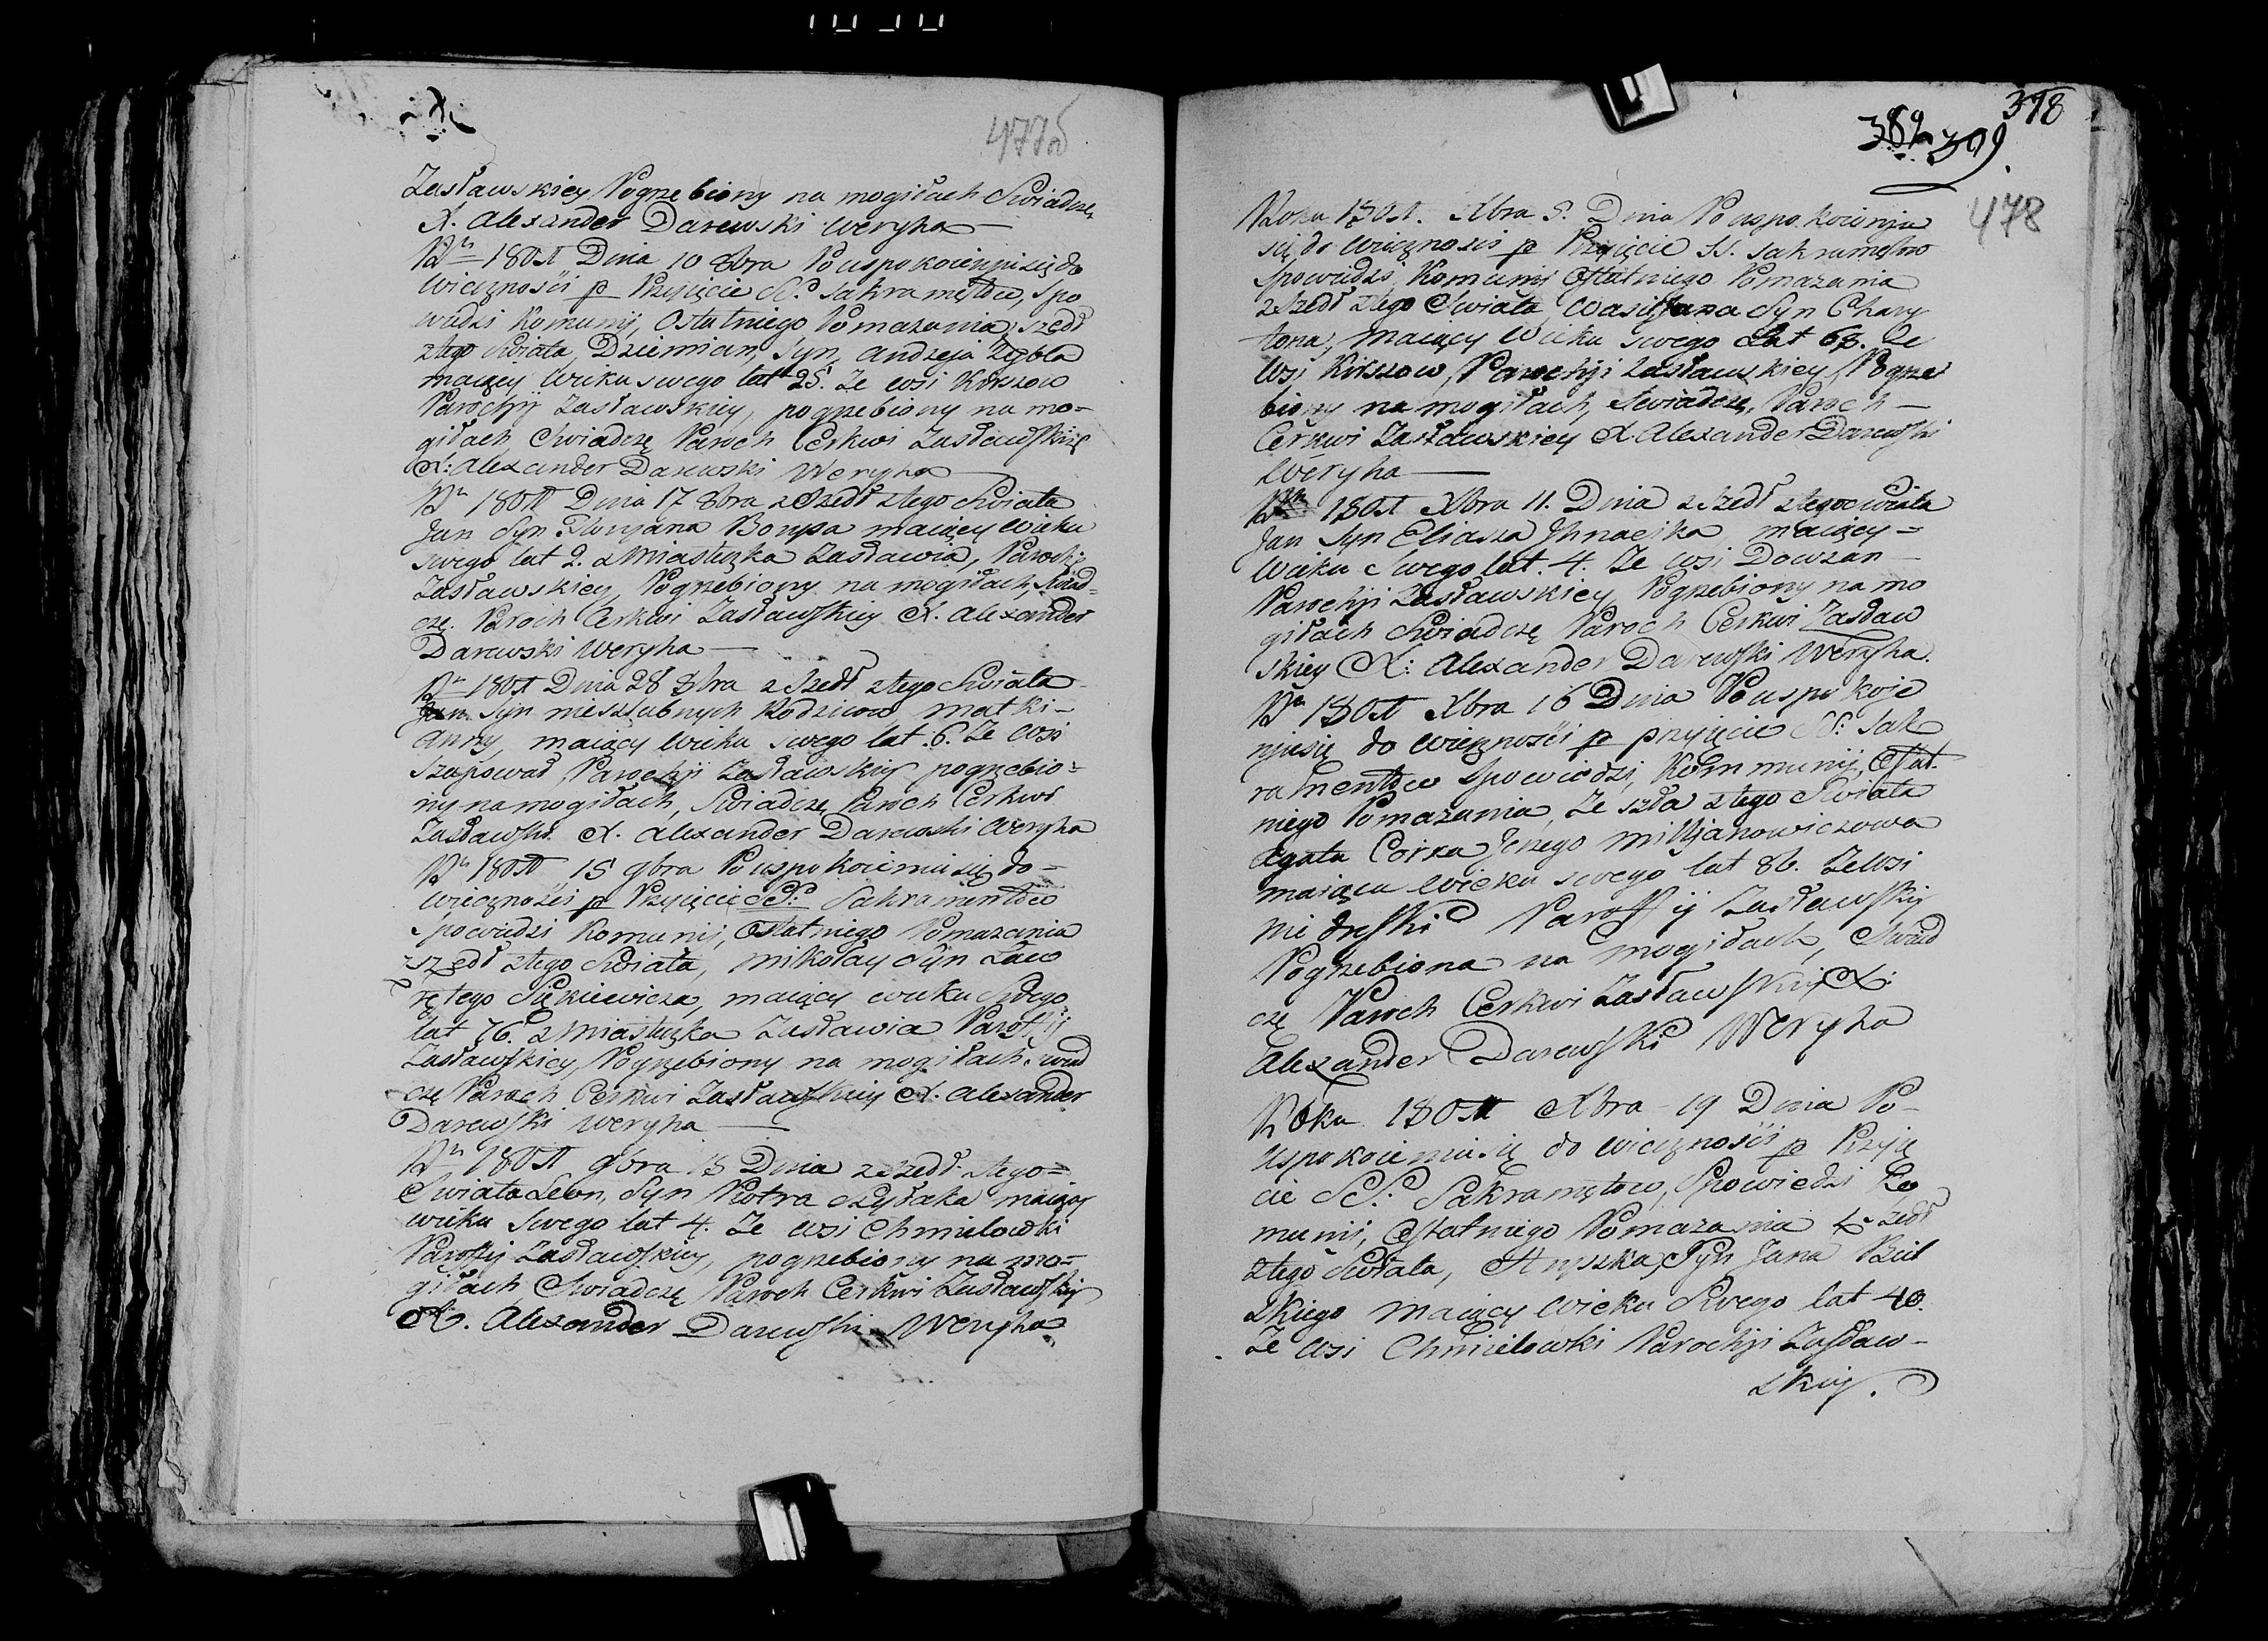 477об
Zasławskiey Pogrzebiony na mogiłach Swiadczę
X. Alexander Darewski Weryha —
Dnia 10 8bra Po uspokoieniu się do
Wiecznosći p Przyięcie SS. Sakramętow, Spo
wiedzi Komunij, Ostatniego Pomazania, szedł
ztego Swiata, Dziemian, Syn, Andzeja
maiący Wieku swego lat 25. Ze wsi
Parochij Zasławskiey, pogrzebiony na mo=
giłach, Swiadczę Paroch Cerkwi Zasławskiey
X: Alexander Darewski Weryha
Dnia 17 8bra zszedł ztego Swiata
Jan Syn maiący Wieku
swego lat 2. z Miasteczka Zasławia, Parochij
Zasławskiey, Pogrzebiony na mogiłach, Swiad=
czę. Paroch Cerkwi Zasławskiey X. Alexander
Darewski Weryha —
Dnia 28 8bra zszedł ztego Swiata
Syn nieszlubnych Rodzicow matki —
Anny, maiący Wieku swego lat .6. Ze Wsi
Szapował Parochij Zasławskiey pogrzebio=
ny na mogiłach, Swiadczę Paroch Cerkwi
Zasławski. X. Alexander Darewski Weryha
15 9bra Po uspokoieniu się do =
Wiecznosći p Przyięcie SS: Sakramentow
Spowiedzi Komunij, Ostatniego Pomazania
zszedł ztego Swiata, Mikołay Syn Law
rętego maiący wieku Swego
lat 76. z Miasteczka Zasławia Paroffij
Zasławskiey, Pogrzebiony na mogiłach. swiad
czę Paroch Cerkwi Zasławskiey X. Alexander
Darewski Weryha —
9bra Dnia zeszedł ztego =
Swiata Leon, Syn Piotra maiący
wieku Swego lat 4. Ze wsi Chmielowki
Paroffij Zasławskiey, pogrzebiony na mo=
giłach Swiadczę Paroch Cerkwi Zasławskiey
X. Alexander Darewski Weryha
378
389 309
478
Roku Xbra 5. Dnia Po uspokoieniu
się do Wiecznosci p Przyięcie SS. Sakramętow
Spowiedzi Komunij Ostatniego Pomazania
zszedł ztego Swiata, Syn Chary
tona, maiący Wieku swego Lat Ze
Wsi Parochji Zasławskiey, Pogrze
biony na mogiłach, Swiadczę, Paroch —
Cerkwi Zasławskiey X. Alexander Darewski
Weryha —
Xbra 11. Dnia zszedł ztego swiata
Jan Syn Eliasza Ihnacika maiący =
Wieku Swego lat. 4. Ze wsi Dowzan —
Parochji Zasławskiey, Pogrzebiony na mo
giłach Swiadczę Paroch Cerkwi Zasław
skiey X: Alexander Darewski Weryha.
Xbra 16 Dnia Po uspokoie
niusię do wiecznosći p przyięcie SS: Sak
ramentow Spowiedzi, Kommunij, Ostat.
niego Pomazania, Ze szła ztego Swiata
Agata Corka Jerzego
maiąca Wieku swego lat 86. Ze Wsi
Paroffij Zasławskiy
Pogrzebiona na mogiłach, Swiad
czę Paroch Cerkwi Zasławskiy X:
Alexander Darewski Weryha
Roku Xbra - 19 Dnia Po —
uspokoieniu się do wiecznosći p Przyię
cie SS. Sakramętow, Spowiedzi Ko
munij, Ostatniego Pomazania Ze szedł
ztego Swiata, Hryszka Syn Jana
maiący wieku Swego lat 40.
Ze wsi Chmielowki Parochji Zasław —
skiy.